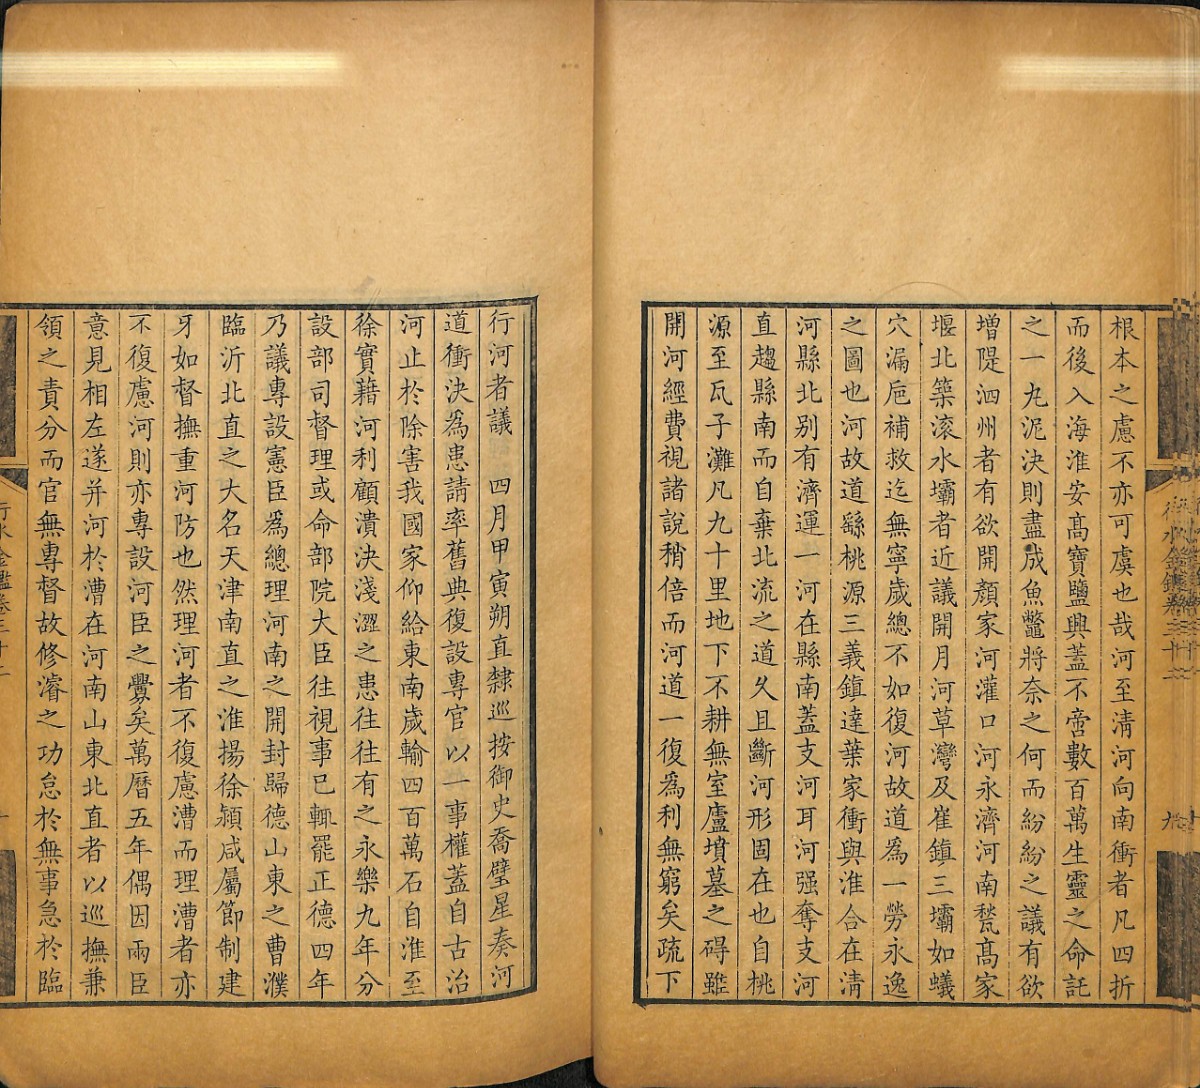 根本之慮不亦可虞也哉河至淸河向南衝者凡四折
而後入海淮安高寶鹽興蓋不啻數百萬生靈之命託
之一丸泥決則盡成魚鼈將奈之何而紛紛之議有欲
增隄泗州者有欲開顏家河灌口河永濟河南甃高家
堰北築滚水壩者近議開月河草灣及崔鎮三壩如蟻
穴漏巵補救迄無寧歲總不如復河故道為一勞永逸
之圖也河故道繇桃源三義鎮達葉家衝與淮合在淸
河縣北别有濟運一河在縣南蓋支河耳河强奪支河
直趨縣南而自棄北流之道乆且斷河形固在也自桃
源至瓦子灘凡九十里地下不耕無室廬墳墓之碍雖
開河經費視諸說稍倍而河道一復爲利無窮矣疏下
行河者議　四月甲寅朔直隸巡按御史喬璧星奏河
道衝決爲患請率舊典復設專官以一事權蓋自古治
河止於除害我國家仰給東南歲輸四百萬石自淮至
徐實藉河利顧潰決淺澀之患往往有之永樂九年分
設部司督理或命部院大臣往視事已輙罷正德四年
乃議專設憲臣爲總理河南之開封歸德山東之曹濮
臨沂北直之大名天津南直之淮揚徐潁咸屬節制建
牙如督撫重河防也然理河者不復慮漕而理漕者亦
不復慮河則亦專設河臣之釁矣萬曆五年偶因兩臣
意見相左遂并河於漕在河南山東北直者以巡撫兼
領之責分而官無專督故修濬之功怠於無事急於臨
行水金鑑卷三十二